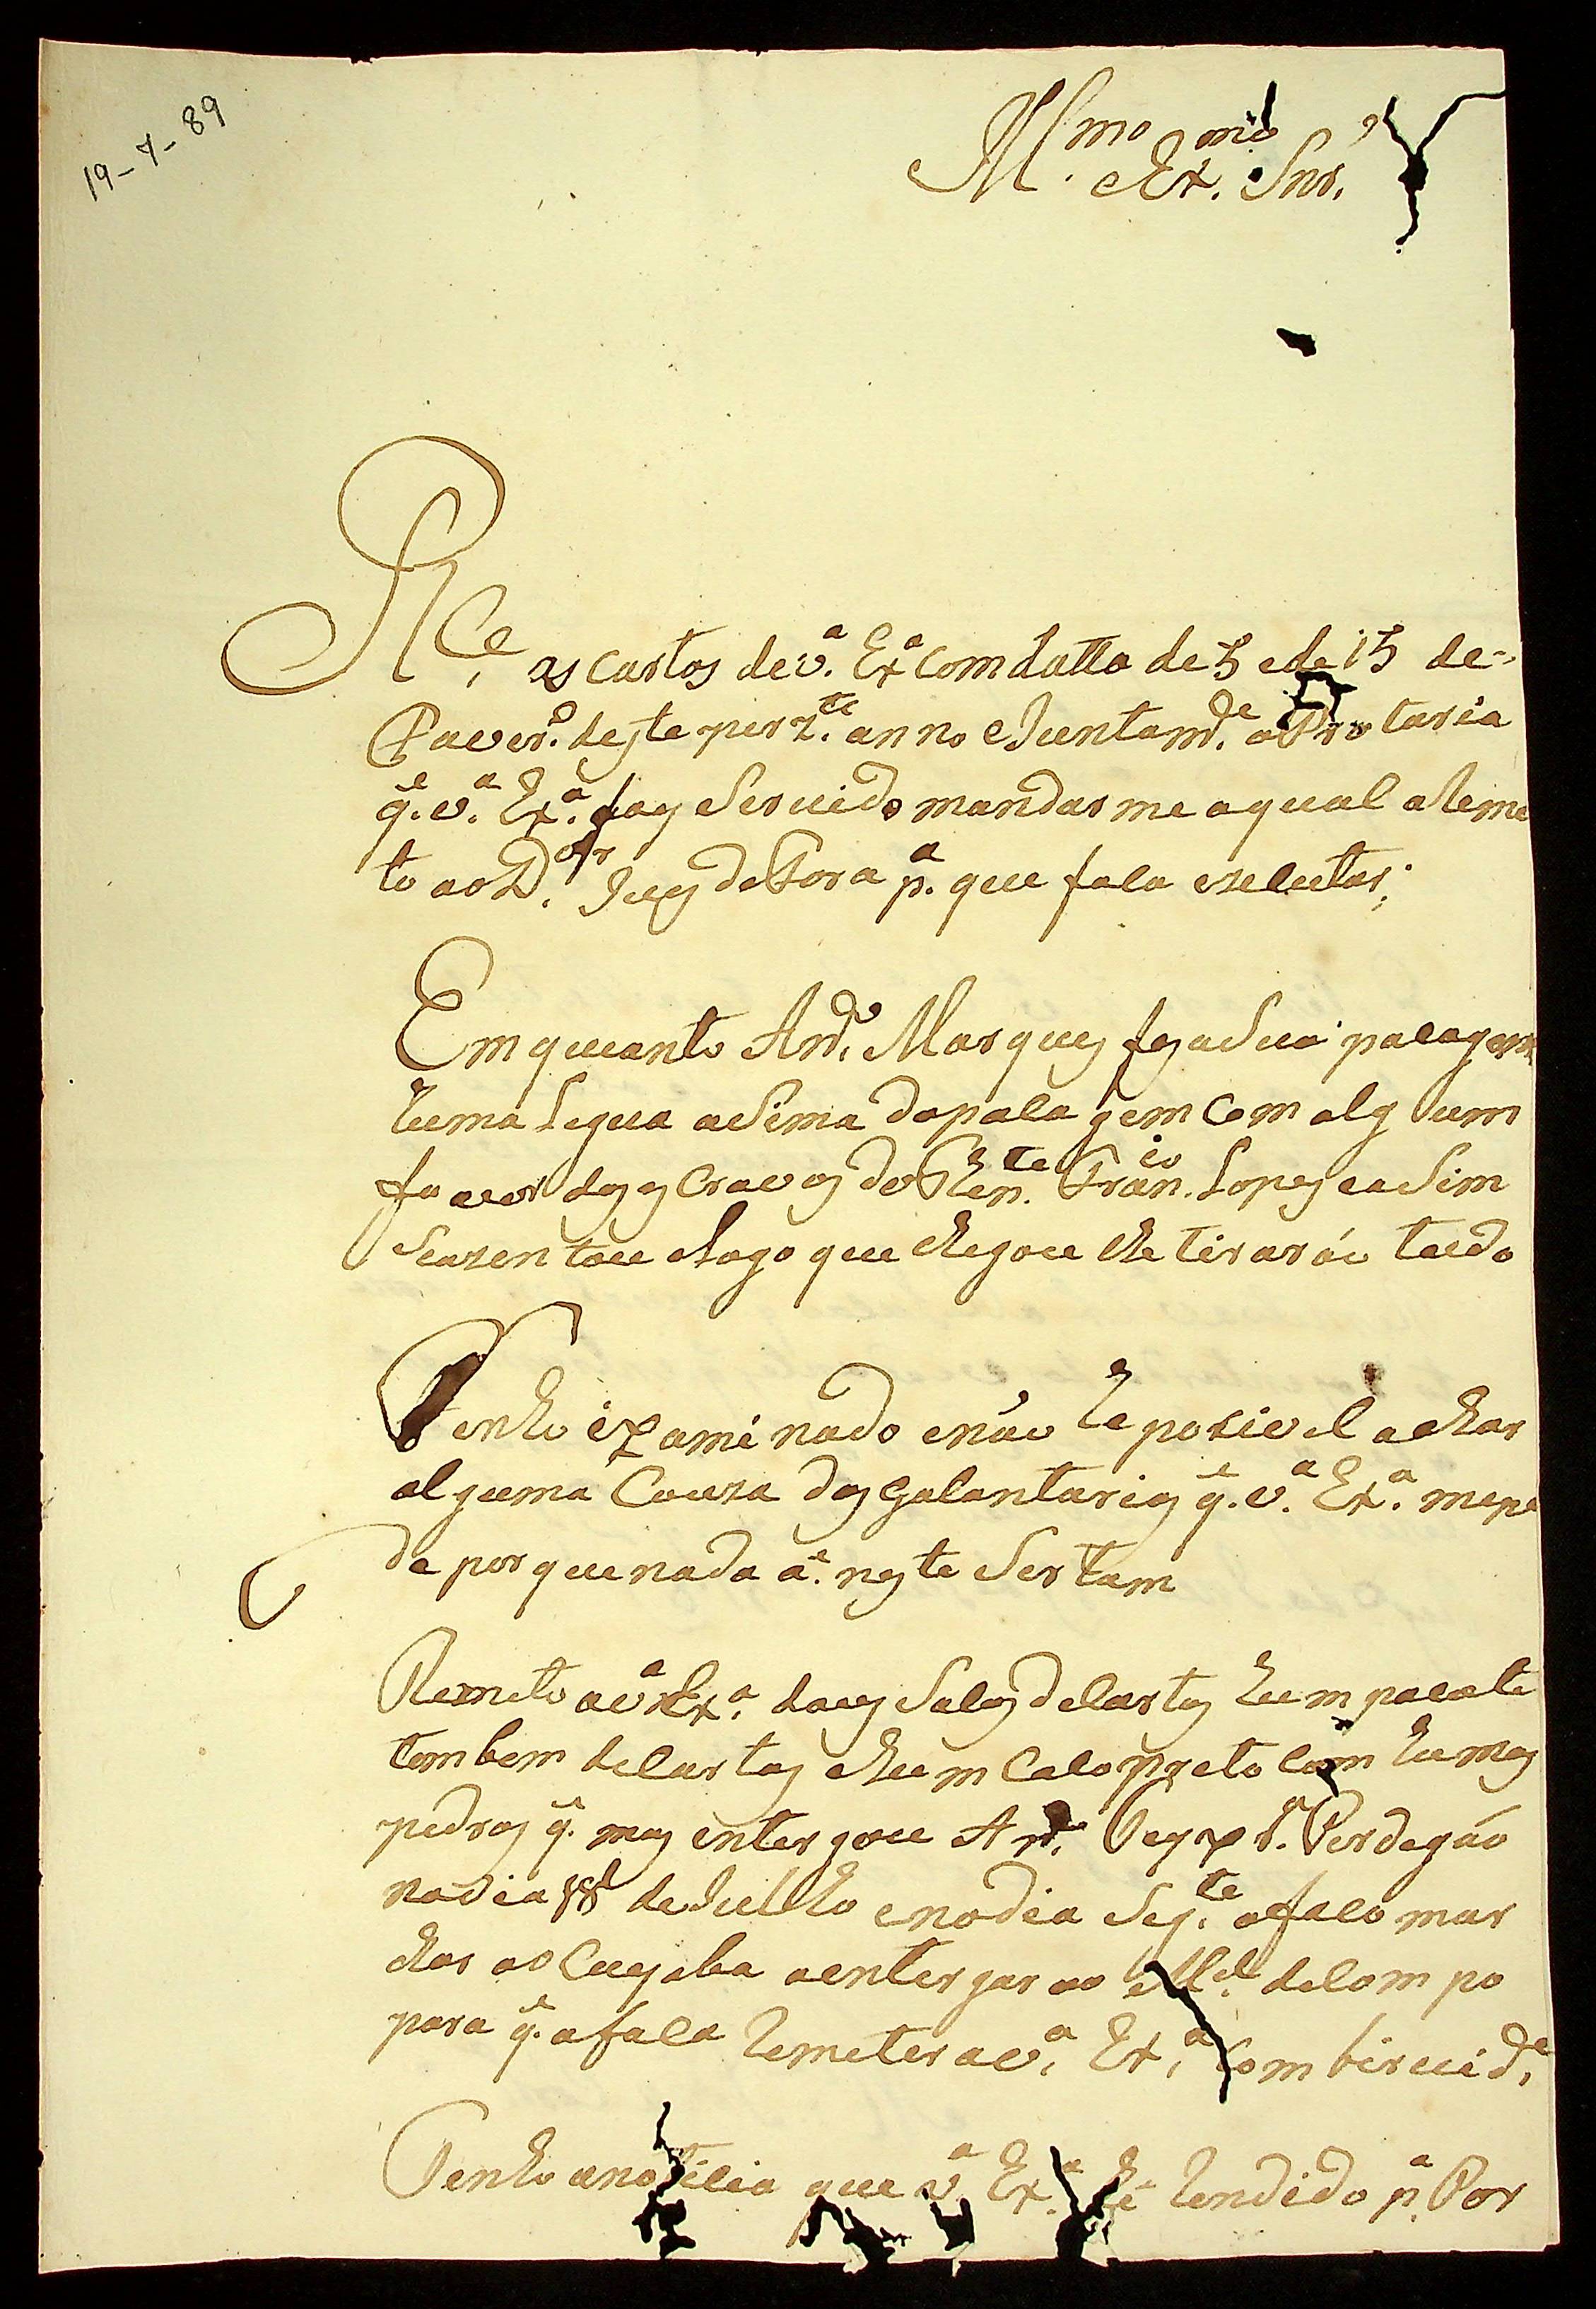 19-7-89
Ill.mo Ex.mo Snr.
R.ce as cartas de v.a Ex.a com datta de 5 e de 15 de
Faver.o deste perz.te anno e Juntam.de a Portaria
q.e v.a Ex.a foy Seruido mandarme a qual a Reme
to ao D.or Juiz de Fora p.a que fasa exelutar;
Em quanto Ant.o Marques fes a Sua pasagem
huma Legua a Sima da pasagem Com alg hum
fauor dos escravos do Ten.te Fran.co Lopes e a Sim
Se azentou e Logo que chegou lhe tirarão tudo
Tenho examinado e não he posivel achar
alguma Couza das galantarias q.e v.a Ex.a me pe
de porque nada á neste Sertam
Remeto a v.a Ex.a duas Salas de lastas hum pacote
tambem de lastas e hum Caso preto Com humas
pedras q.e mas entergou Ant.o Perdegão
no dia 18 de Julho e no dia Seg.te a faso mar
char ao Cuyaba a entergar ao M.el de Campo
para q.e a fasa Remeter a v.a Ex.a Com breuid.e
Tenho a noticia que v.a Ex.a hé Rendido p.a Por